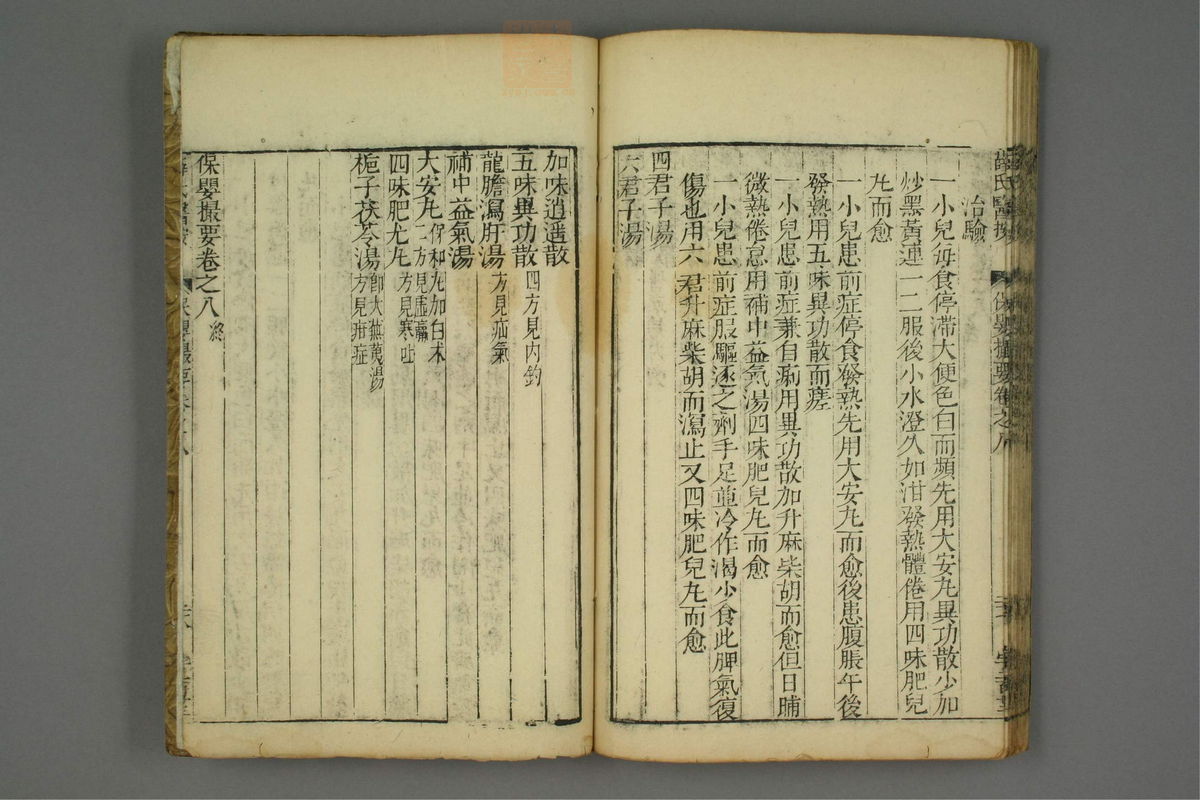 薛氏醫按
保嬰撮要卷之八
治驗
一小兒每食停滯大便色白而頻先用大安丸異功散少加
炒黑黃連一二服後小水澄久如泔發熱體倦用四味肥兒
丸而愈
一小兒患前症停食發熱先用大安丸而愈後患腹脹午後
發熱用五味異功散而瘥
一小兒患前症兼自汗用異功散加升麻柴胡而愈但日晡
微熱倦怠用補中益氣湯四味肥兒丸而愈
一小兒患前症服驅逐之劑手足並冷作渴少食此脾氣復
傷也用六君升麻柴胡而瀉止又四味肥兒丸而愈
四君子湯
六君子湯
加味逍遥散
五味異功散四方見內釣
龍膽瀉肝湯方見疝氣
補中益氣湯
大安丸保和丸加白朮二方見虛羸
四味肥兒丸方見寒吐
梔子茯苓湯即大蕪荑湯方見疳症
保嬰撮要卷之八終